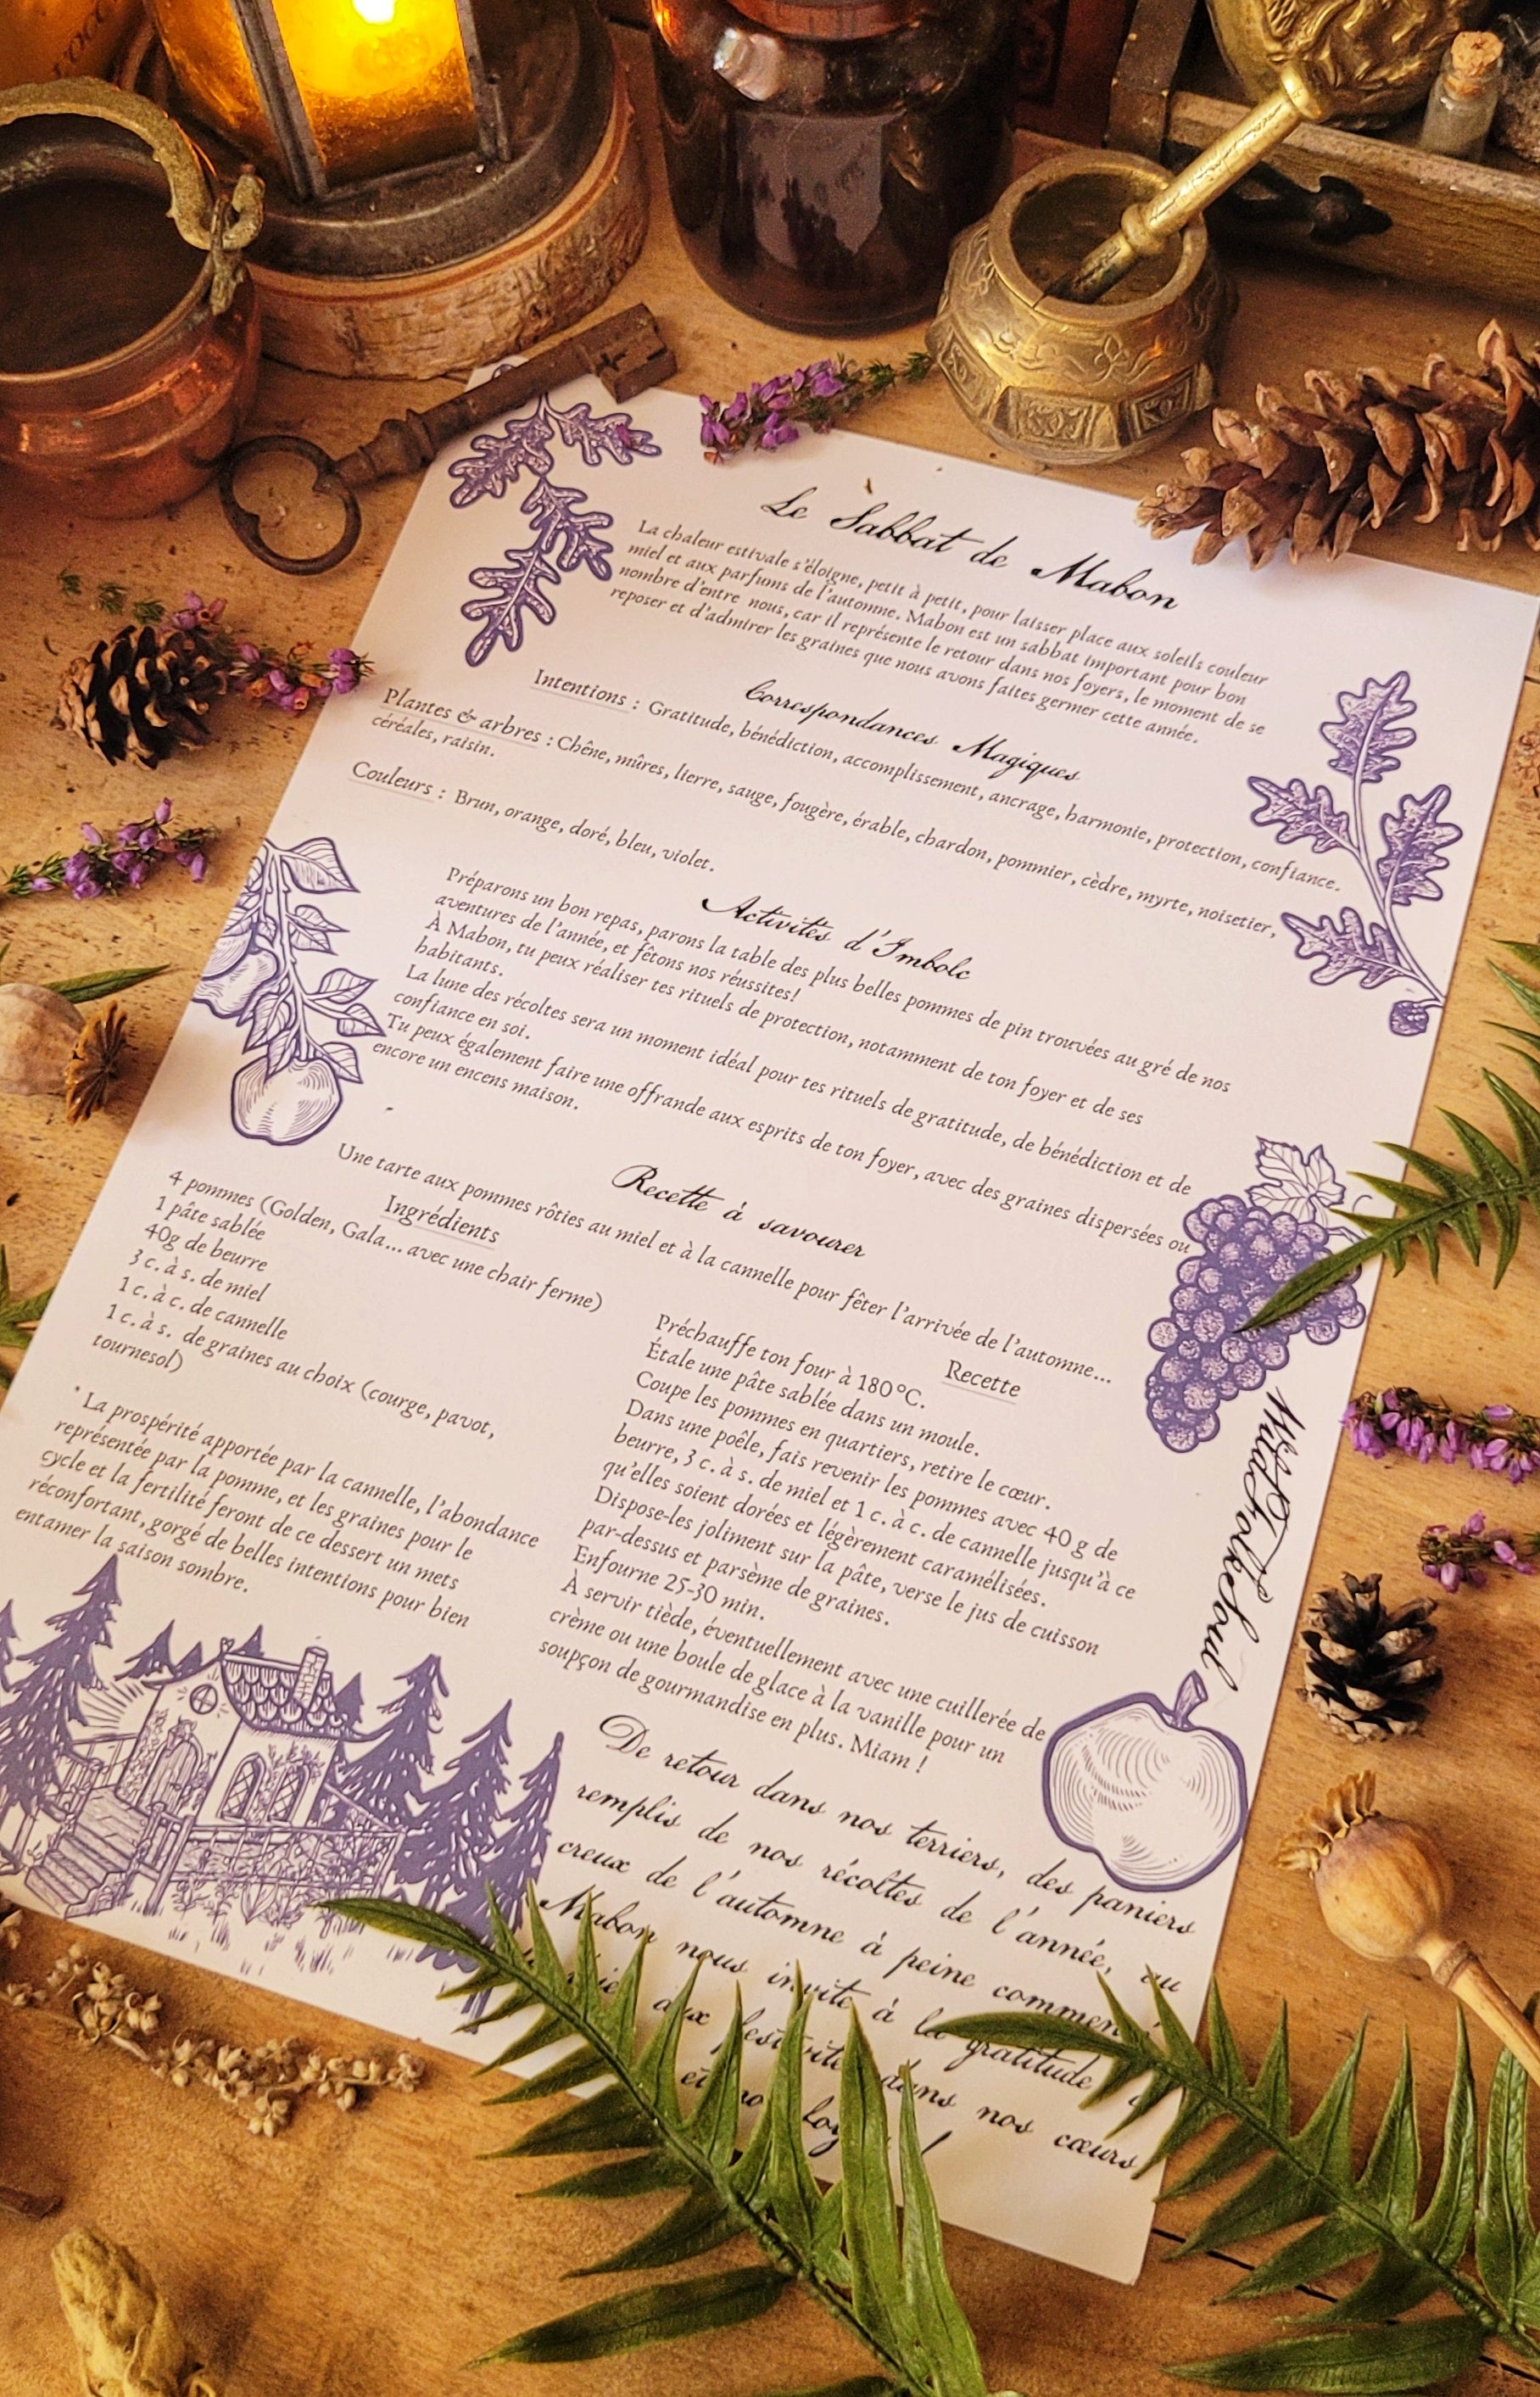 Le Sabbat de Mabon
La chaleur estivale s'éloigne, petit à petit, pour laisser place aux soleils couleur
miel et aux parfums de l'automne. Mabon est un sabbat important pour bon
nombre d'entre nous, car il représente le retour dans nos foyers, le moment de se
reposer et d'admirer les graines que nous avons faites germer cette année.
Correspondances Magiques
Intentions : Gratitude, bénédiction, accomplissement, ancrage, harmonie, protection, confiance.
Plantes & arbres : Chêne, mûres, lierre, sauge, fougère, érable, chardon, pommier, cèdre, myrte, noisetier,
céréales, raisin.
Couleurs : Brun, orange, doré, bleu, violet.
Activités d'Imbolc
Préparons un bon repas, parons la table des plus belles pommes de pin trouvées au gré de nos
aventures de l'année, et fêtons nos réussites!
À Mabon, tu peux réaliser tes rituels de protection, notamment de ton foyer et de ses
habitants.
La lune des récoltes sera un moment idéal pour tes rituels de gratitude, de bénédiction et de
confiance en soi.
Tu peux également faire une offrande aux esprits de ton foyer, avec des graines dispersées ou
encore un encens maison.
Recette à savourer
Une tarte aux pommes rôties au miel et à la cannelle pour fêter l'arrivée de l'automne...
Ingrédients
4 pommes (Golden, Gala... avec une chair ferme)
1 pâte sablée
40g de beurre
3 c. à s. de miel
1 c. à c. de cannelle
1 c. à s. de graines au choix (courge, pavot,
tournesol)
* La prospérité apportée par la cannelle, l'abondance
représentée par la pomme, et les graines pour le
cycle et la fertilité feront de ce dessert un mets
réconfortant, gorgé de belles intentions pour bien
entamer la saison sombre.
Recette
Préchauffe ton four à 180°C.
Étale une pâte sablée dans un moule.
Coupe les pommes en quartiers, retire le cœur.
Dans une poêle, fais revenir les pommes avec 40 g de
beurre, 3 c. à s. de miel et 1 c. à c. de cannelle jusqu'à ce
qu'elles soient dorées et légèrement caramélisées.
Dispose-les joliment sur la pâte, verse le jus de cuisson
par-dessus et parsème de graines.
Enfourne 25-30 min.
À servir tiède, éventuellement avec une cuillerée de
crème ou une boule de glace à la vanille pour un
soupçon de gourmandise en plus. Miam !
WildFolkSoul
De retour dans nos terriers, des paniers
remplis de nos récoltes de l'année, au
creux de l'automne à peine
Mabon nous invite à la gratitude
aux dans nos cœurs
et !